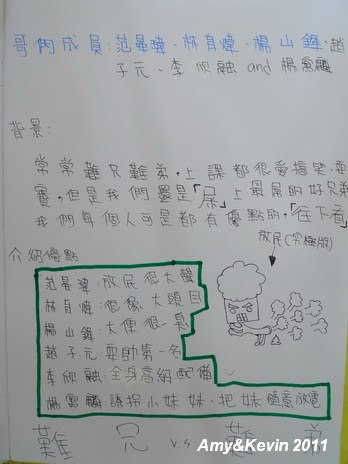 哥們成員:范晏瑋、林育煒、楊山鋒、趙
子元、李欣融 and 楊富麟
背景:
常常難兄難弟,上課都很愛搞笑、耍
賽,但是我們還是「屎」上最屌的好兄弟
我們每個人可是都有優點的,「往下看」
放屁(究極版)
介紹優點
范晏瑋:放屁很大聲
林育煒:很像大頭目
楊山鋒:大便很一桌
趙子元:耍帥第一名
李欣融:全身高級配備
楊富麟:誘拐小妹妹、把妹隨意放電
難兄 v.s 難弟
Amy&Kevin 2011